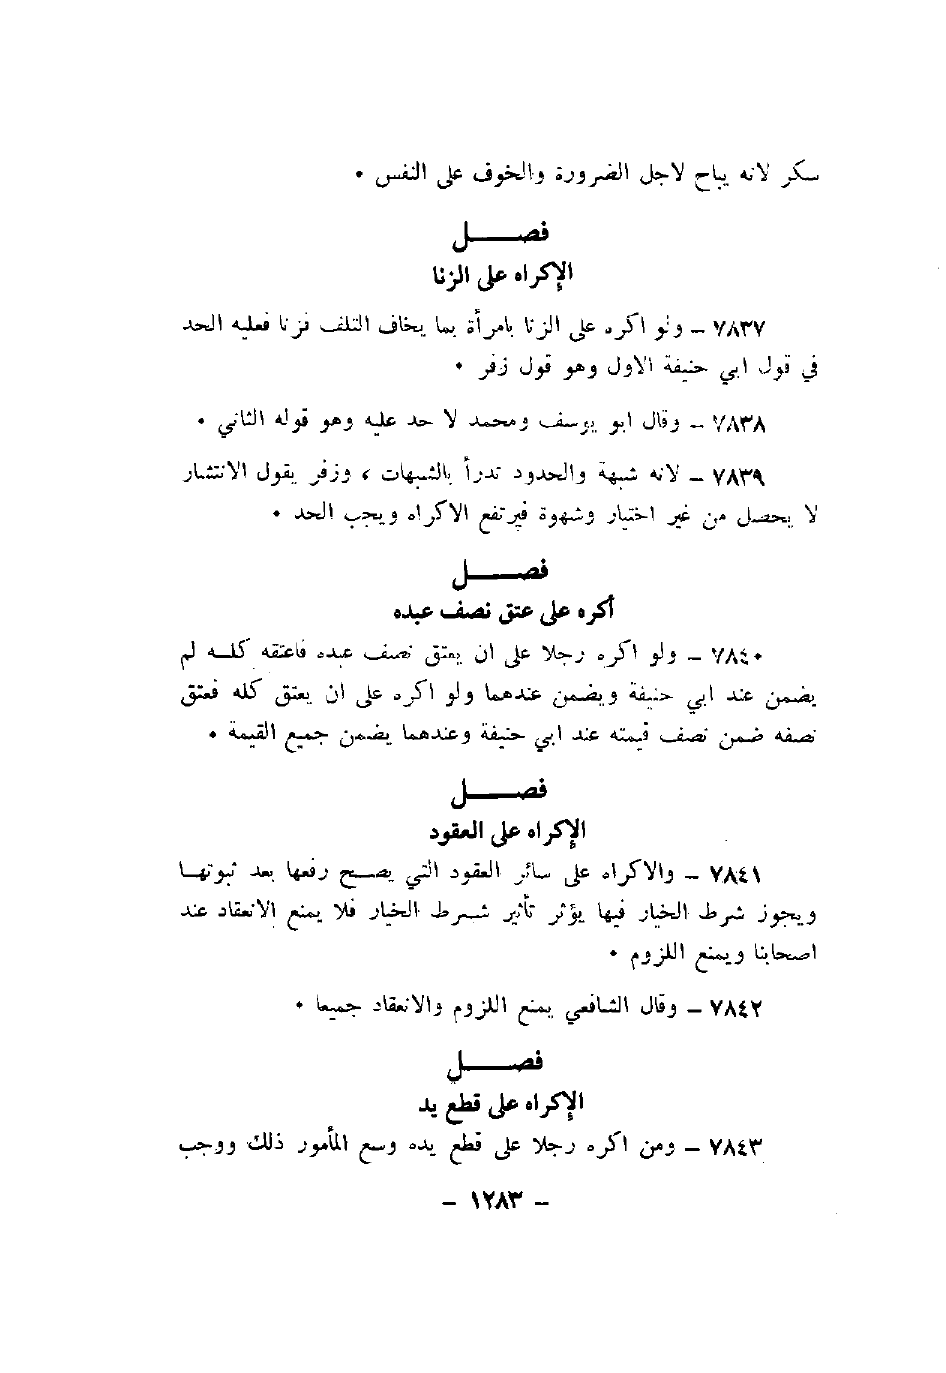 سكر لانه يباح لاجل الضرورة والخوف على النفس ٠
فصـــــل
الإكراه على الزنا
٧٨٣٧ – ولو اكره على الزنا بامرأة بما يخاف التلف فزنا فعليه الحد
في قول ابي حنيفة الاول وهو قول زفر ٠
٧٨٣٨ – وقال ابو يوسف ومحمد لا حد عليه وهو قوله الثاني ٠
٧٨٣٩ – لانه شبهة والحدود تدرأ بالشبهات ، وزفر يقول الانتشار
لا يحصل من غير اختيار وشهوة فيرتفع الاكراه ويجب الحد ٠
فصـــــل
أكره على عتق نصف عبده
٧٨٤٠ – ولو اكره رجلا على ان يعتق نصف عبده فاعتقه كلــه لم
يضمن عند ابي حنيفة ويضمن عندهما ولو اكره على ان يعتق كله فعتق
نصفه ضمن نصف قيمته عند ابي حنيفة وعندهما يضمن جميع القيمة ٠
فصـــــل
الإكراه على العقود
٧٨٤١ – والاكراه على سائر العقود التي يصــح رفعها بعد ثبوتهــا
ويجوز شرط الخيار فيها يؤثر تأثير شــرط الخيار فلا يمنع الانعقاد عند
اصحابنا ويمنع اللزوم ٠
٧٨٤٢ – وقال الشافعي يمنع اللزوم والانعقاد جميعا ٠
فصـــــل
الإكراه على قطع يد
٧٨٤٣ – ومن اكره رجلا على قطع يده وسع المأمور ذلك ووجب
– ١٢٨٣ –